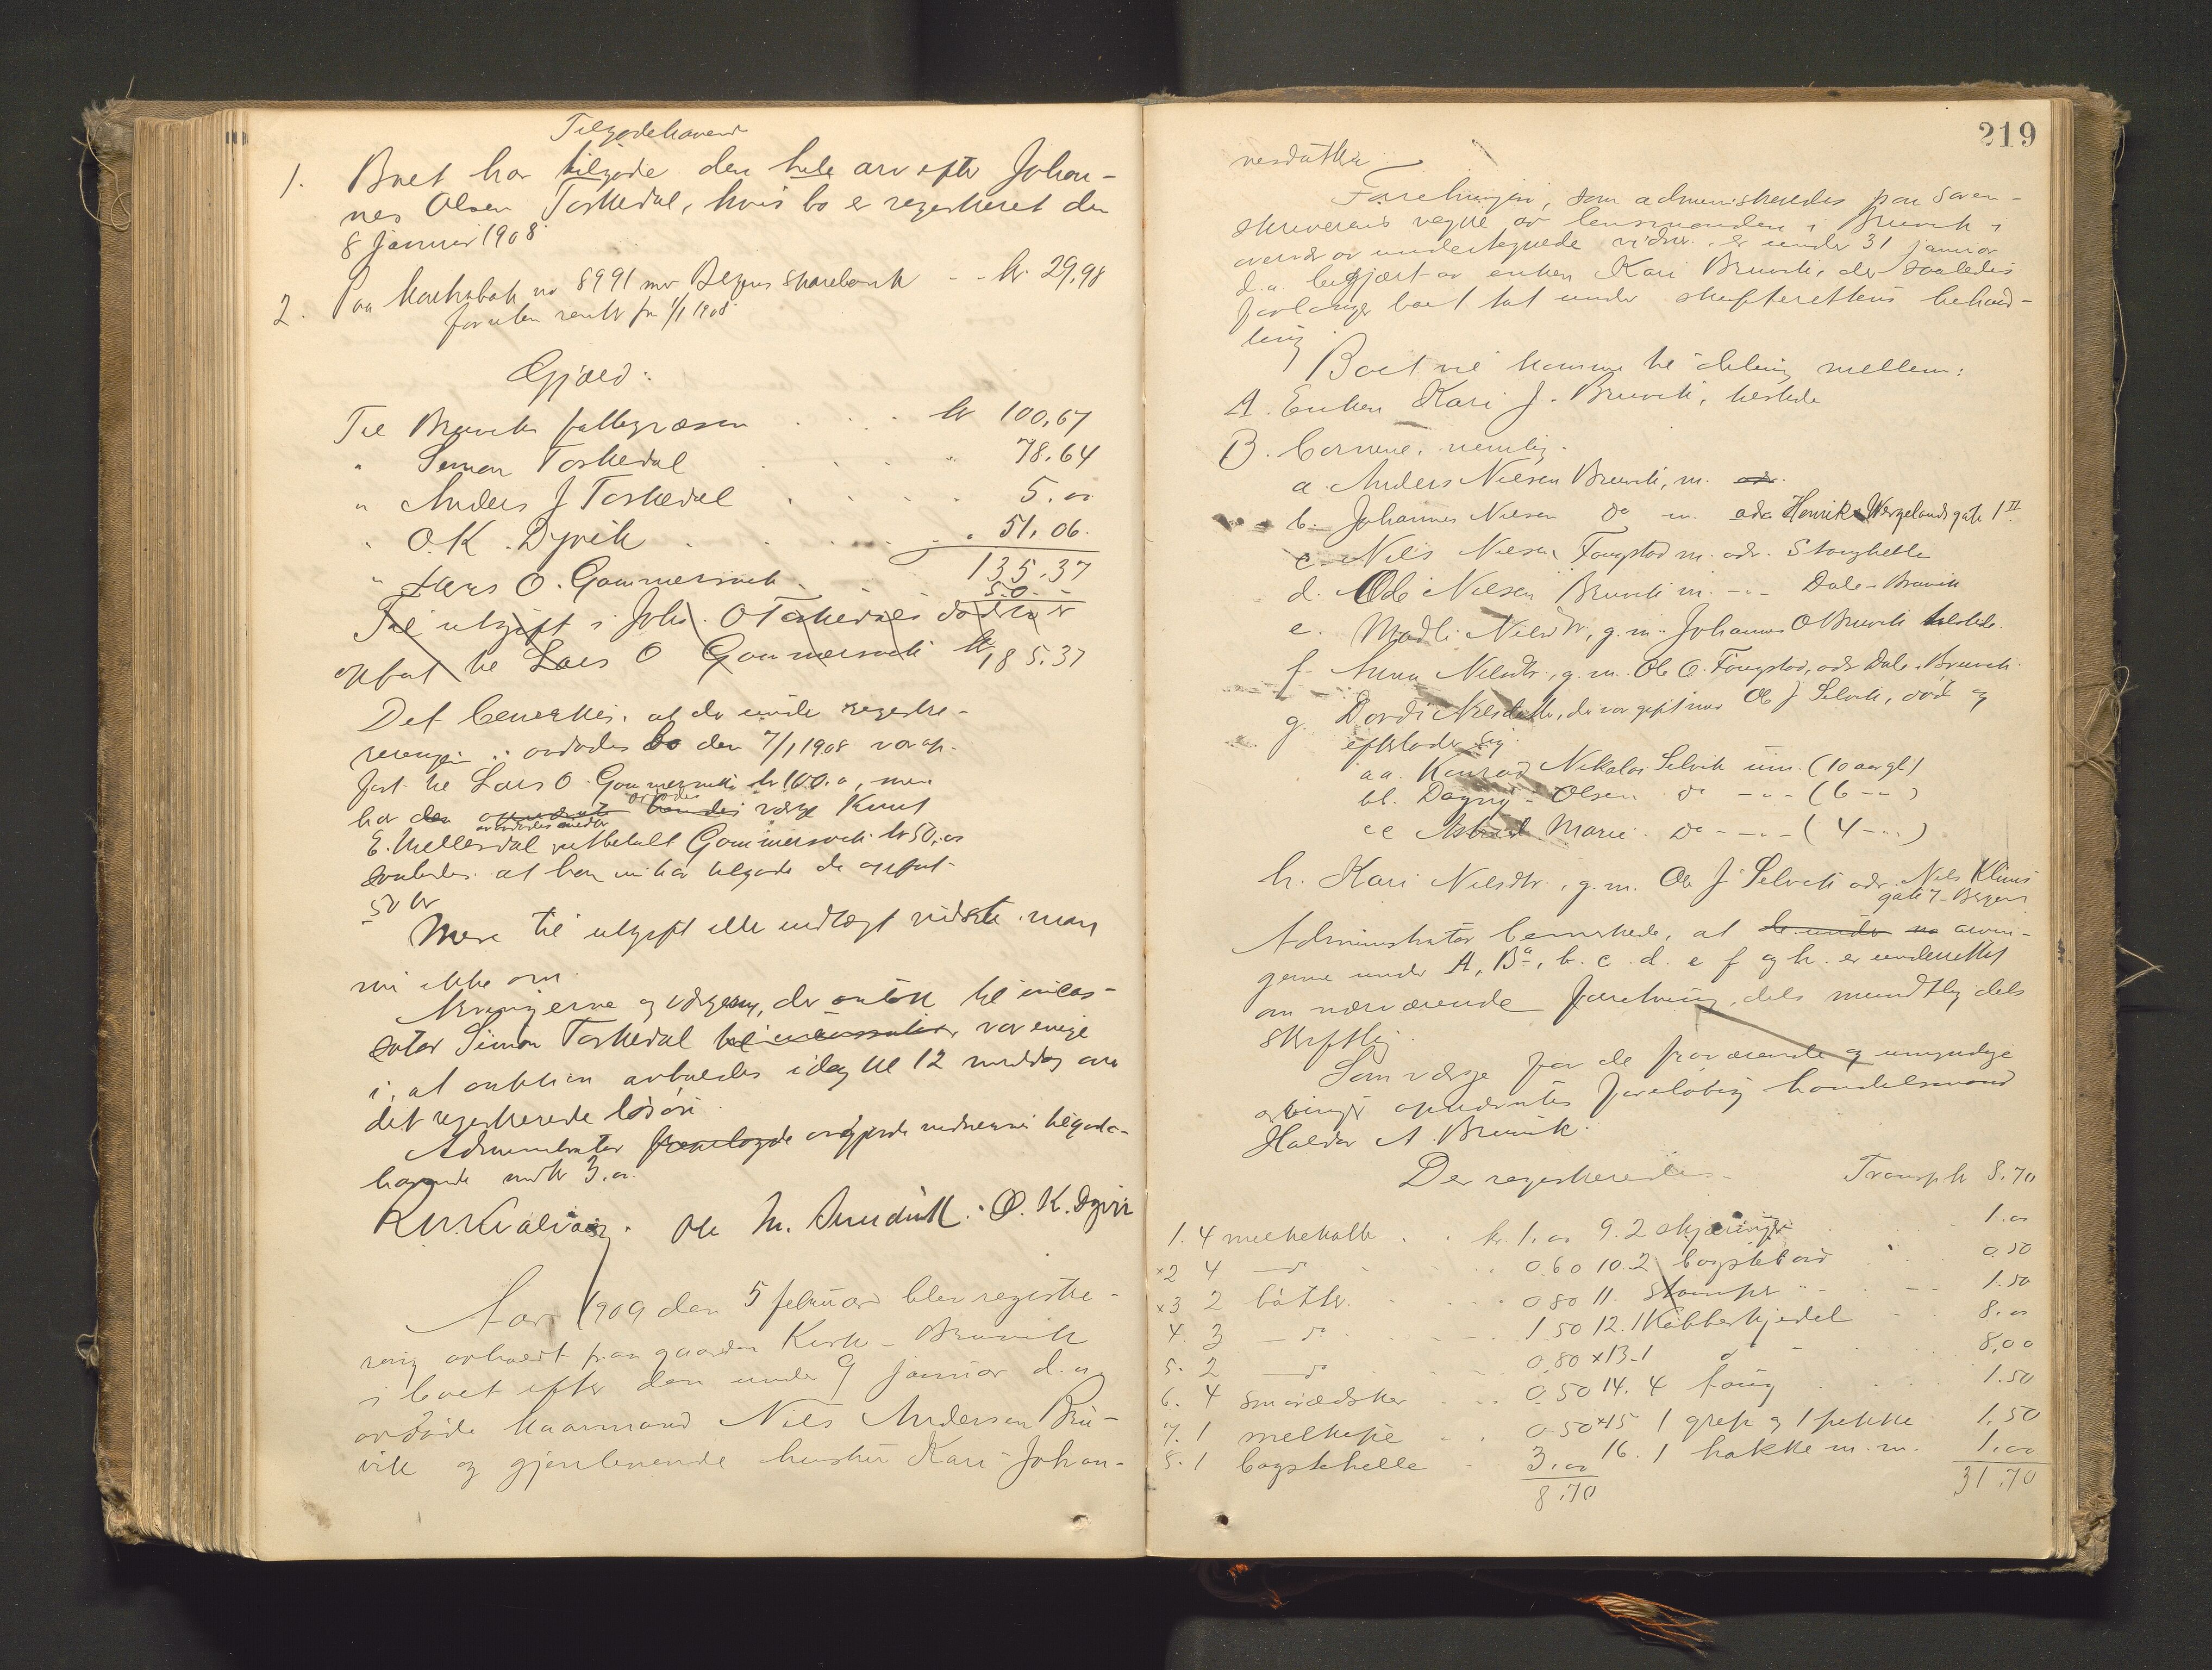 Tilgodehavend
1. Boet har tilgode den hele arv efter Johan-
nes Olsen Toskedal, hvis bo er registreret den
8 januar 1908
2. Paa Kontrabok no 8991 mv Bergens Sparebank -- kr. 29,98
foruten renter fra 1/1 1908
Gjæld:
Til Bruviks fattigvæsen . . . kr 100,67
" Simon Toskedal . . . " 78.64
" Anders J Toskedal . . . . 5.00
" O.K. Dyvik . . . . " 51,06.
" Lars O. Gammersvik . 135.37
50.-
Til utgift i Johs. O Toskedals dødsbo er
opført til Lars O Gammersvik kr 185.37
Det bemerkes, at da under registre-
reringen i avdødes bo den 7/1 1908 var op-
ført til Lars O. Gammersvik kr 100.0, men
har den opnævnte avdødes værge Knut
E. Mellesdal av avdødes midler utbetalt Gammersvik kr 50,00
saaledes at han nu har tilgode de opført
50 kr
Mere til utgift eller indtægt vidste man
nu ikke om.
Arvingerne og værgerne, der antok til incas-
sator Simon Toskedal til incassator, var enige
i, at auktion avholdes idag kl 12 middag over
det registrerede løsøre.
Administrator fremlagde avgjorde vidnernes tilgode-
havende med kr 3.00.
R. Kvalvaag. Ole M. Smedvik. O. K. Dyvik
Aar 1909 den 5 februar blev registre-
ring avholdt paa gaarden Kirk-Bruvik
i boet efter den under 9 januar d.a.
avdøde kaarmand Nils Andersen Bru-
vik og gjenlevende hustru Kari Johan-
219
nesdatter
Forretningen, som administreredes paa Soren-
skriverens vegne av lensmanden i Bruvik i
overvær av undertegnede vidner, er under 31 januar
d.a. begjært av enken Kari Bruvik, der saaledes
forlanger boet tat under skifterettens behand-
ling
Boet vil komme til deling mellem:
A. Enken Kari J. Bruvik, hersteds
B. børnene, nemlig.
a. Anders Nilsen Bruvik, m. adr.
b. Johannes Nilsen do m. adr Henrik Wergelandsgate 1 II
c. Nils Nilsen Fougstad m. adr. Stanghelle
d. Ole Nilsen Bruvik m. -"- Dale-Bruvik
e. Madli Nilsdtr, g.m. Johannes O Bruvik hersteds.
f. Anna Nilsdtr., g.m. Ole O. Fougstad, adr Dale-Bruvik.
g. Dordi Nilsdatter, der var gift med Ole J Selvik, død og
efterlader sig:
aa. Konrad Nikolai Selvik um. (10 aar gl)
bb. Dagny Olsen do -"- (6 -")
cc Astrid Marie do -"- (4 -")
h. Kari Nilsdtr., g.m. Ole J Selvik adr. Nils Klims
gate 7 - Bergen
Administrator bemerkede, at de under no arvin-
gerne under A, Ba, b. c. d. e f og h. er underrettet
om nærværende forretning, dels mundtlig dels
skriftlig.
Som værge for de fraværende og umyndige
arvinger opnævntes foreløbig handelsmand
Haldor A. Bruvik.
Der registreredes.
Transp kr 8.70
1. 4 melkekolle . . kr. 1.00 9. 2 skjæringer . . 1.00
×2 4 —do . . 0.60 10. 2 bagstebord . 0.50
×3 2 bøtter . . 0.80 11. stamper " - 1.50
4. 3 —do . . 1.50 12. 1 Kobberkjedel - 8.00
5. 2 —do . . 0.80 ×13. 1 do - 8,00
6. 4 smørædsker . . 0.50 14. 4 faug . . 1.50
7. 1 melkesie . . 0.50 ×15 1 grep og 1 pekke 1.50
8. 1 bagstehelle - 3.00 16. 1 hakke m.m. 1.00
8.70 31.70